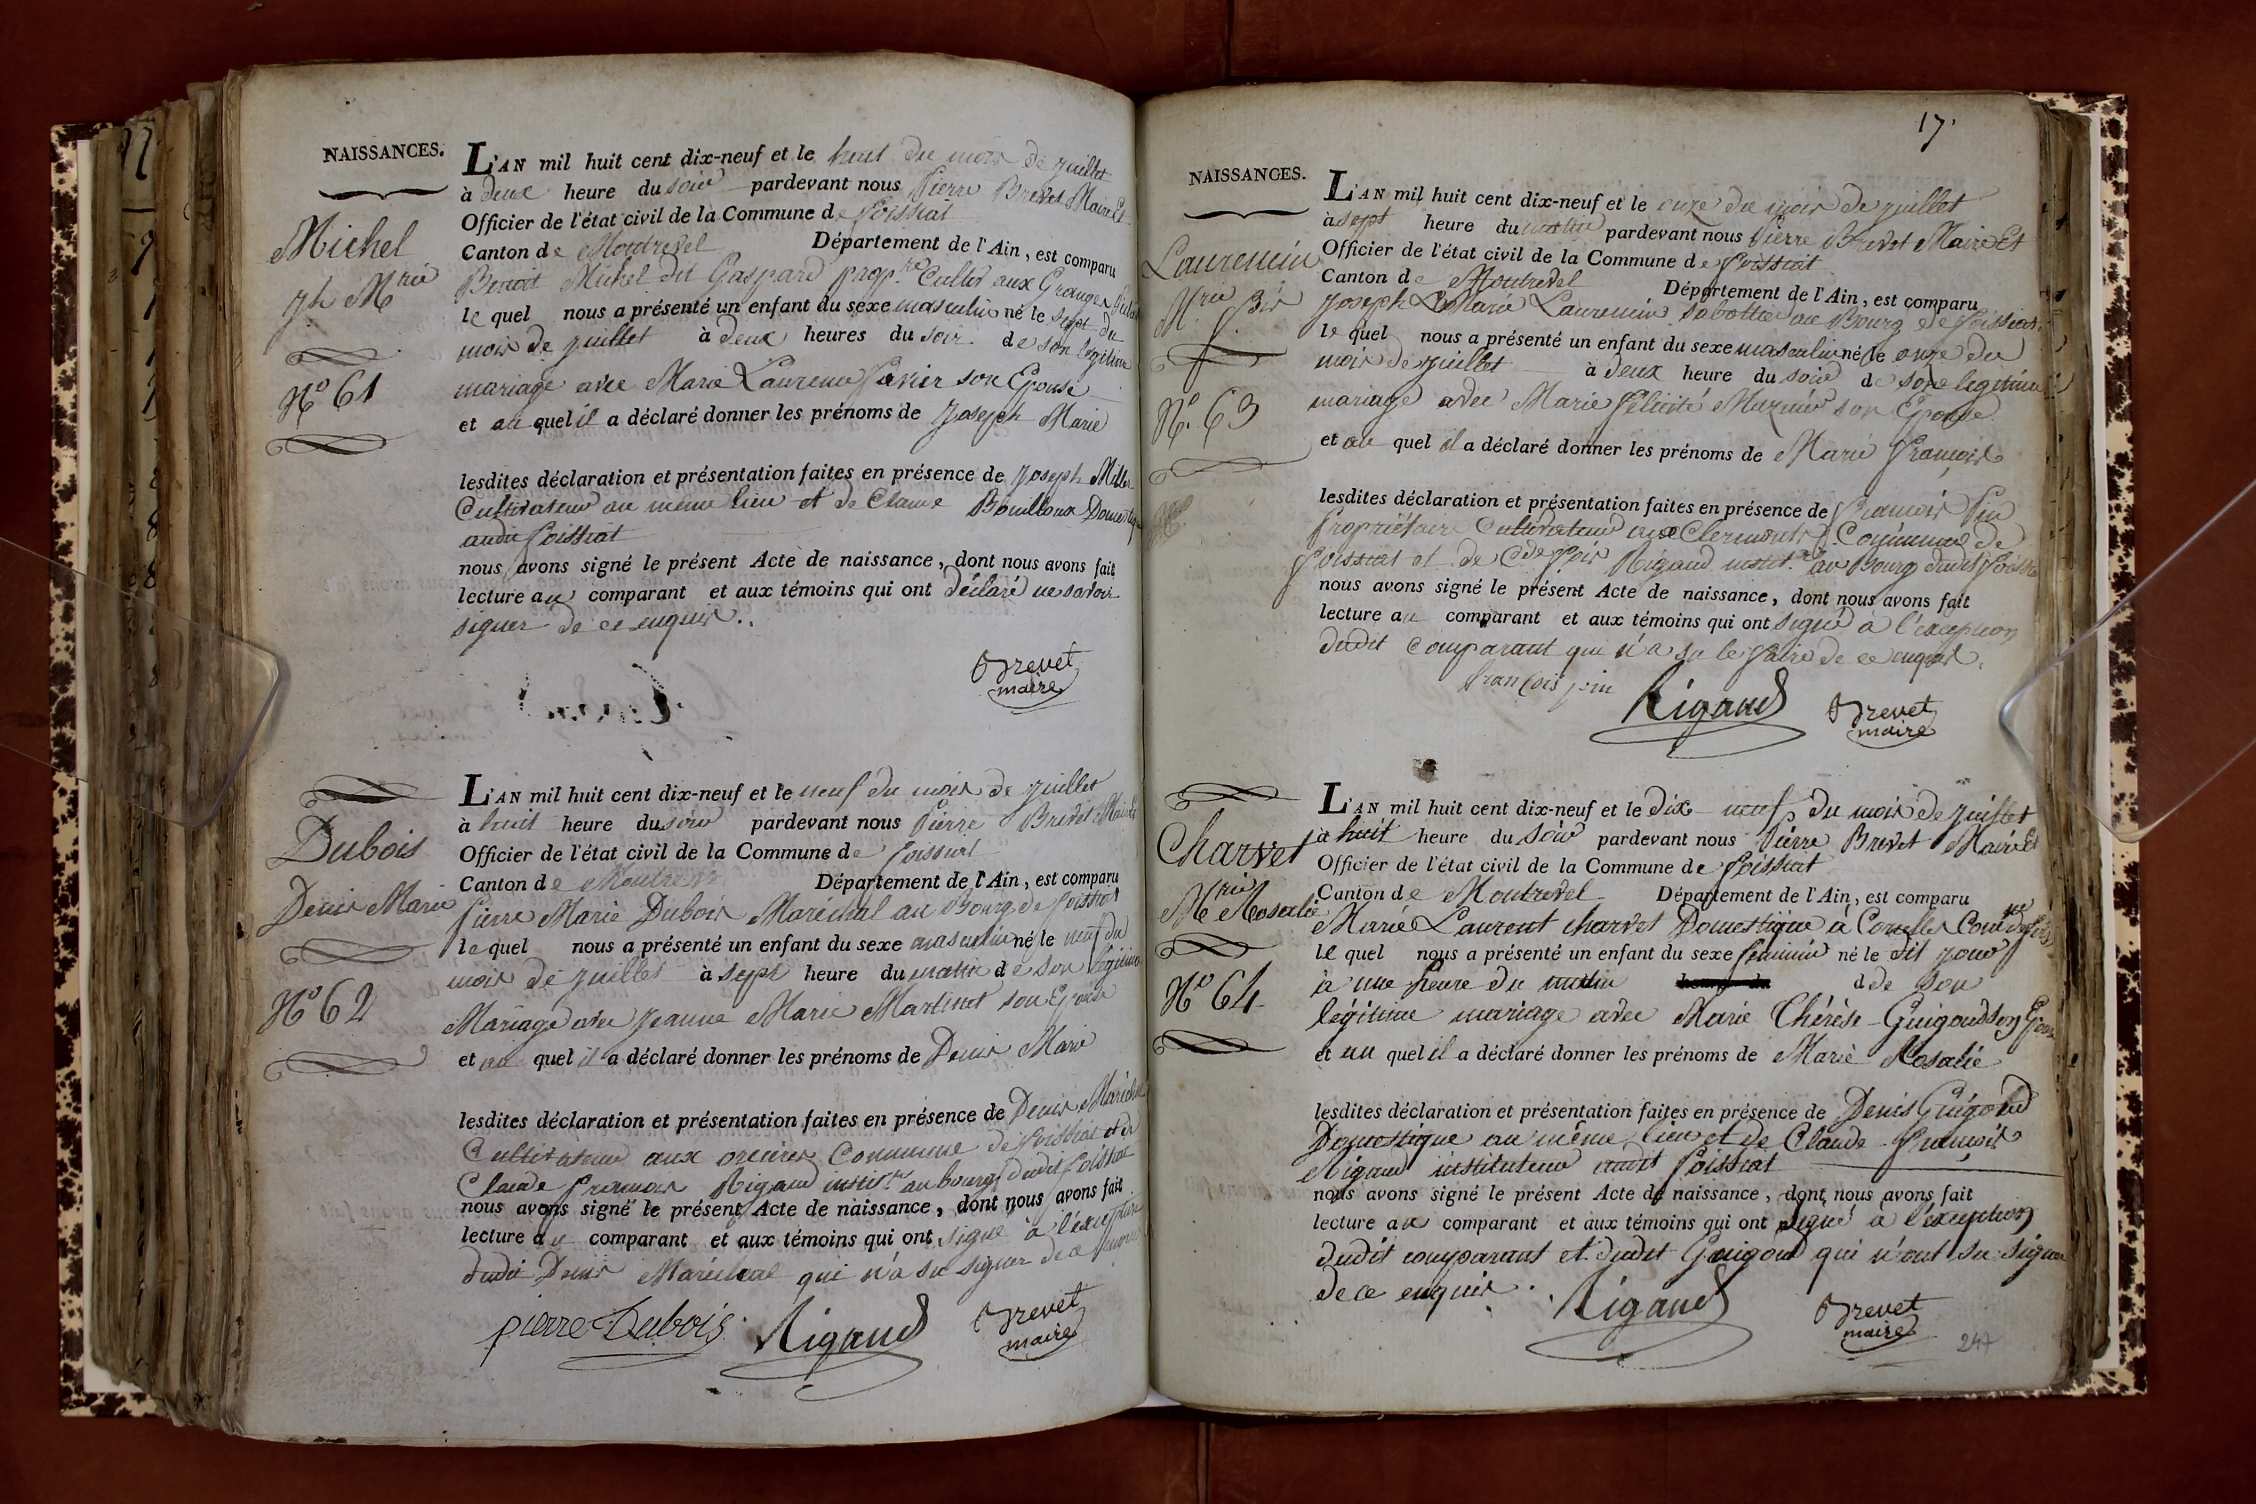 NAISSANCES.
L'AN mil huit cent dix-neuf et le huit du mois de juillet
à deux heure du soir pardevant nous Pierre Brevet Maire Et
Officier de l'état civil de la Commune de Foissiat
Canton de Montrevel Département de l'Ain, est comparu
Benoit Michel dit Gaspard prop.re Cultiv aux Granges
le quel nous a présenté un enfant du sexe masculin né le sept du
mois de juillet à deux heures du soir de son légitime
mariage avec Marie Laurence son Epouse
et au quel il a déclaré donner les prénoms de Joseph Marie
lesdites déclaration et présentation faites en présence de Joseph
Cultivateur au même lieu et de Claude Bouilloux
audit Foissiat
nous avons signé le présent Acte de naissance, dont nous avons fait
lecture au comparant et aux témoins qui ont déclaré ne savoir
signer de ce enquis.
Brevet
maire
Michel
Jh M.rie
N.o 61
L'AN mil huit cent dix-neuf et le neuf du mois de juillet
à huit heure du soir pardevant nous Pierre Brevet Maire Et
Officier de l'état civil de la Commune de Foissiat
Canton de Montrevel Département de l'Ain, est comparu
Pierre Marie Dubois Maréchal au Bourg de Foissiat
le quel nous a présenté un enfant du sexe masculin né le neuf du
mois de juillet à sept heure du matin de son légitime
Mariage avec Jeanne Marie Martinet son Epouse
et au quel il a déclaré donner les prénoms de Denis Marie
lesdites déclaration et présentation faites en présence de Denis Maréchal
Cultivateur aux Commune de Foissiat et de
Claude François Rigaud instit.r au bourg dudit Foissiat
nous avons signé le présent Acte de naissance, dont nous avons fait
lecture au comparant et aux témoins qui ont signé à l'exception
dudit Denis Maréchal qui n'a su signer de ce
pierre Dubois Rigaud Brevet
maire
Dubois
Denis Marie
N.o 62
17.
NAISSANCES.
L'AN mil huit cent dix-neuf et le onze du mois de juillet
à sept heure du pardevant nous Pierre Brevet Maire Et
Officier de l'état civil de la Commune de Foissiat
Canton de Montrevel Département de l'Ain, est comparu
Joseph Marie Laurencin Sabottier au Bourg de Foissiat
le quel nous a présenté un enfant du sexe masculin né le onze du
mois de juillet à deux heure du soir de son légitime
mariage avec Marie Félicité son Epouse
et au quel il a déclaré donner les prénoms de Marie François
lesdites déclaration et présentation faites en présence de François Pin
Propriétaire Cultivateur aux Clermonts Commune de
Foissiat et de C.de f.ois Rigaud instit.r au Bourg dudit Foissiat
nous avons signé le présent Acte de naissance, dont nous avons fait
lecture au comparant et aux témoins qui ont signé à l'exception
dudit Comparant qui n'a su le faire de ce enquis.
francois pin Rigaud Brevet
maire
Laurencin
M.rie f.ois
N.o 63
L'AN mil huit cent dix-neuf et le dix-neuf du mois de juillet
à huit heure du soir pardevant nous Pierre Brevet Maire Et
Officier de l'état civil de la Commune de Foissiat
Canton de Montrevel Département de l'Ain, est comparu
Marie Laurent Charvet Domestique à Com.ne
le quel nous a présenté un enfant du sexe féminin né le dit jour
à une heure du matin de son
légitime mariage avec Marie Thérèse Guigoud son Epouse
et au quel il a déclaré donner les prénoms de Marie Rosalie
lesdites déclaration et présentation faites en présence de Denis Guigoud
Domestique au même lieu et de Claude François
Rigaud instituteur audit Foissiat
nous avons signé le présent Acte de naissance, dont nous avons fait
lecture au comparant et aux témoins qui ont signé à l'exception
dudit comparant et dudit Guigoud qui n'ont su signer
de ce enquis.
Rigaud Brevet
maire
Charvet
M.rie Rosalie
N.o 64
247